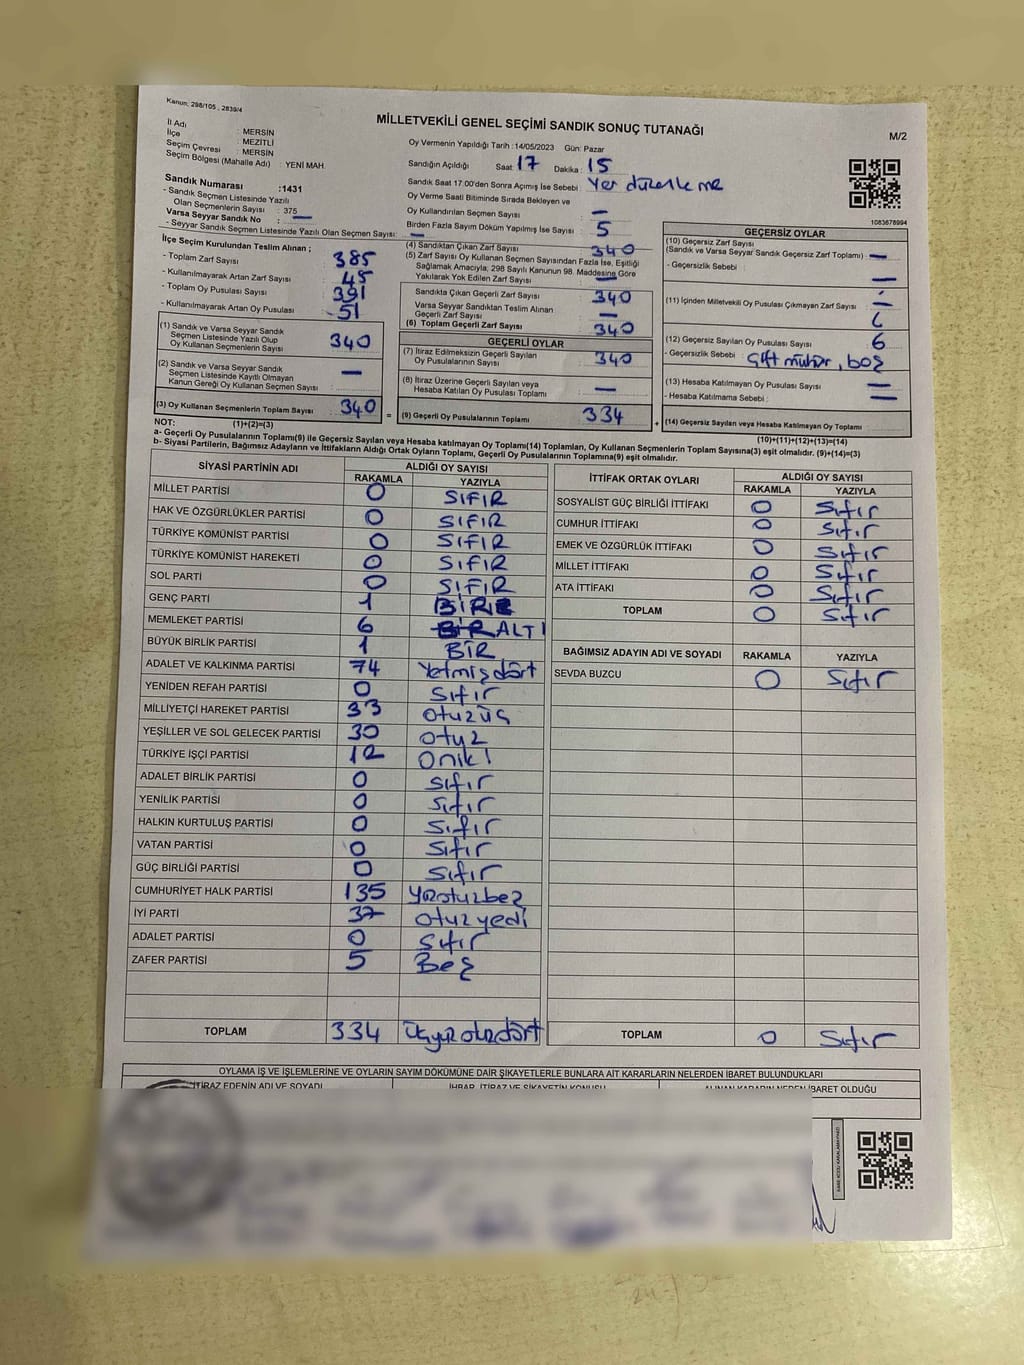 Kanun; 298/105 , 2839/4
MİLLETVEKİLİ GENEL SEÇİMİ SANDIK SONUÇ TUTANAĞI
M/2
İl Adı : MERSİN
İlçe : MEZİTLİ
Seçim Çevresi : MERSİN
Seçim Bölgesi (Mahalle Adı) : YENİ MAH.
Oy Vermenin Yapıldığı Tarih :14/05/2023 Gün: Pazar
Sandığın Açıldığı Saat: 17 Dakika: 15
Sandık Saat 17.00'den Sonra Açılmış İse Sebebi : Yer düzenleme
Oy Verme Saati Bitiminde Sırada Bekleyen ve
Oy Kullandırılan Seçmen Sayısı : —
Birden Fazla Sayım Döküm Yapılmış İse Sayısı : 5
Sandık Numarası :1431
- Sandık Seçmen Listesinde Yazılı
Olan Seçmenlerin Sayısı : 375
Varsa Seyyar Sandık No : —
- Seyyar Sandık Seçmen Listesinde Yazılı Olan Seçmen Sayısı: —
1083678994
İlçe Seçim Kurulundan Teslim Alınan ;
- Toplam Zarf Sayısı : 385
- Kullanılmayarak Artan Zarf Sayısı : 45
- Toplam Oy Pusulası Sayısı : 391
- Kullanılmayarak Artan Oy Pusulası : 51
(1) Sandık ve Varsa Seyyar Sandık
Seçmen Listesinde Yazılı Olup
Oy Kullanan Seçmenlerin Sayısı : 340
(2) Sandık ve Varsa Seyyar Sandık
Seçmen Listesinde Kayıtlı Olmayan
Kanun Gereği Oy Kullanan Seçmen Sayısı : —
(3) Oy Kullanan Seçmenlerin Toplam Sayısı : 340
(4) Sandıktan Çıkan Zarf Sayısı : 340
(5) Zarf Sayısı Oy Kullanan Seçmen Sayısından Fazla İse, Eşitliği
Sağlamak Amacıyla, 298 Sayılı Kanunun 98. Maddesine Göre
Yakılarak Yok Edilen Zarf Sayısı : —
Sandıkta Çıkan Geçerli Zarf Sayısı : 340
Varsa Seyyar Sandıktan Teslim Alınan
Geçerli Zarf Sayısı : —
(6) Toplam Geçerli Zarf Sayısı : 340
GEÇERLİ OYLAR
(7) İtiraz Edilmeksizin Geçerli Sayılan
Oy Pusulalarının Sayısı : 340
(8) İtiraz Üzerine Geçerli Sayılan veya
Hesaba Katılan Oy Pusulası Toplamı : —
= (9) Geçerli Oy Pusulalarının Toplamı : 334
GEÇERSİZ OYLAR
(10) Geçersiz Zarf Sayısı
(Sandık ve Varsa Seyyar Sandık Geçersiz Zarf Toplamı) : —
- Geçersizlik Sebebi : —
(11) İçinden Milletvekili Oy Pusulası Çıkmayan Zarf Sayısı : —
(12) Geçersiz Sayılan Oy Pusulası Sayısı : 6
- Geçersizlik Sebebi : Çift mühür, boş
(13) Hesaba Katılmayan Oy Pusulası Sayısı : —
- Hesaba Katılmama Sebebi : —
+ (14) Geçersiz Sayılan veya Hesaba Katılmayan Oy Toplamı :
NOT: (1)+(2)=(3) (10)+(11)+(12)+(13)=(14)
a- Geçerli Oy Pusulalarının Toplamı(9) ile Geçersiz Sayılan veya Hesaba katılmayan Oy Toplamı(14) Toplamları, Oy Kullanan Seçmenlerin Toplam Sayısına(3) eşit olmalıdır. (9)+(14)=(3)
b- Siyasi Partilerin, Bağımsız Adayların ve İttifakların Aldığı Ortak Oyların Toplamı, Geçerli Oy Pusulalarının Toplamına(9) eşit olmalıdır.
SİYASİ PARTİNİN ADI ALDIĞI OY SAYISI
RAKAMLA YAZIYLA
MİLLET PARTİSİ 0 SIFIR
HAK VE ÖZGÜRLÜKLER PARTİSİ 0 SIFIR
TÜRKİYE KOMÜNİST PARTİSİ 0 SIFIR
TÜRKİYE KOMÜNİST HAREKETİ 0 SIFIR
SOL PARTİ 0 SIFIR
GENÇ PARTİ 1 BİR
MEMLEKET PARTİSİ 6 BİR ALTI
BÜYÜK BİRLİK PARTİSİ 1 BİR
ADALET VE KALKINMA PARTİSİ 74 Yetmişdört
YENİDEN REFAH PARTİSİ 0 Sıfır
MİLLİYETÇİ HAREKET PARTİSİ 33 otuzüç
YEŞİLLER VE SOL GELECEK PARTİSİ 30 otuz
TÜRKİYE İŞÇİ PARTİSİ 12 oniki
ADALET BİRLİK PARTİSİ 0 sıfır
YENİLİK PARTİSİ 0 Sıfır
HALKIN KURTULUŞ PARTİSİ 0 Sıfır
VATAN PARTİSİ 0 Sıfır
GÜÇ BİRLİĞİ PARTİSİ 0 Sıfır
CUMHURİYET HALK PARTİSİ 135 Yüzotuzbeş
İYİ PARTİ 37 otuzyedi
ADALET PARTİSİ 0 Sıfır
ZAFER PARTİSİ 5 Beş
TOPLAM 334 üçyüzotuzdört
İTTİFAK ORTAK OYLARI ALDIĞI OY SAYISI
RAKAMLA YAZIYLA
SOSYALİST GÜÇ BİRLİĞİ İTTİFAKI 0 Sıfır
CUMHUR İTTİFAKI 0 Sıfır
EMEK VE ÖZGÜRLÜK İTTİFAKI 0 Sıfır
MİLLET İTTİFAKI 0 Sıfır
ATA İTTİFAKI 0 Sıfır
TOPLAM 0 Sıfır
BAĞIMSIZ ADAYIN ADI VE SOYADI RAKAMLA YAZIYLA
SEVDA BUZCU 0 Sıfır
TOPLAM 0 Sıfır
OYLAMA İŞ VE İŞLEMLERİNE VE OYLARIN SAYIM DÖKÜMÜNE DAİR ŞİKAYETLERLE BUNLARA AİT KARARLARIN NELERDEN İBARET BULUNDUKLARI
İTİRAZ EDENİN ADI VE SOYADI İHBAR, İTİRAZ VE ŞİKAYETİN KONUSU ALINAN KARARIN NEDEN İBARET OLDUĞU